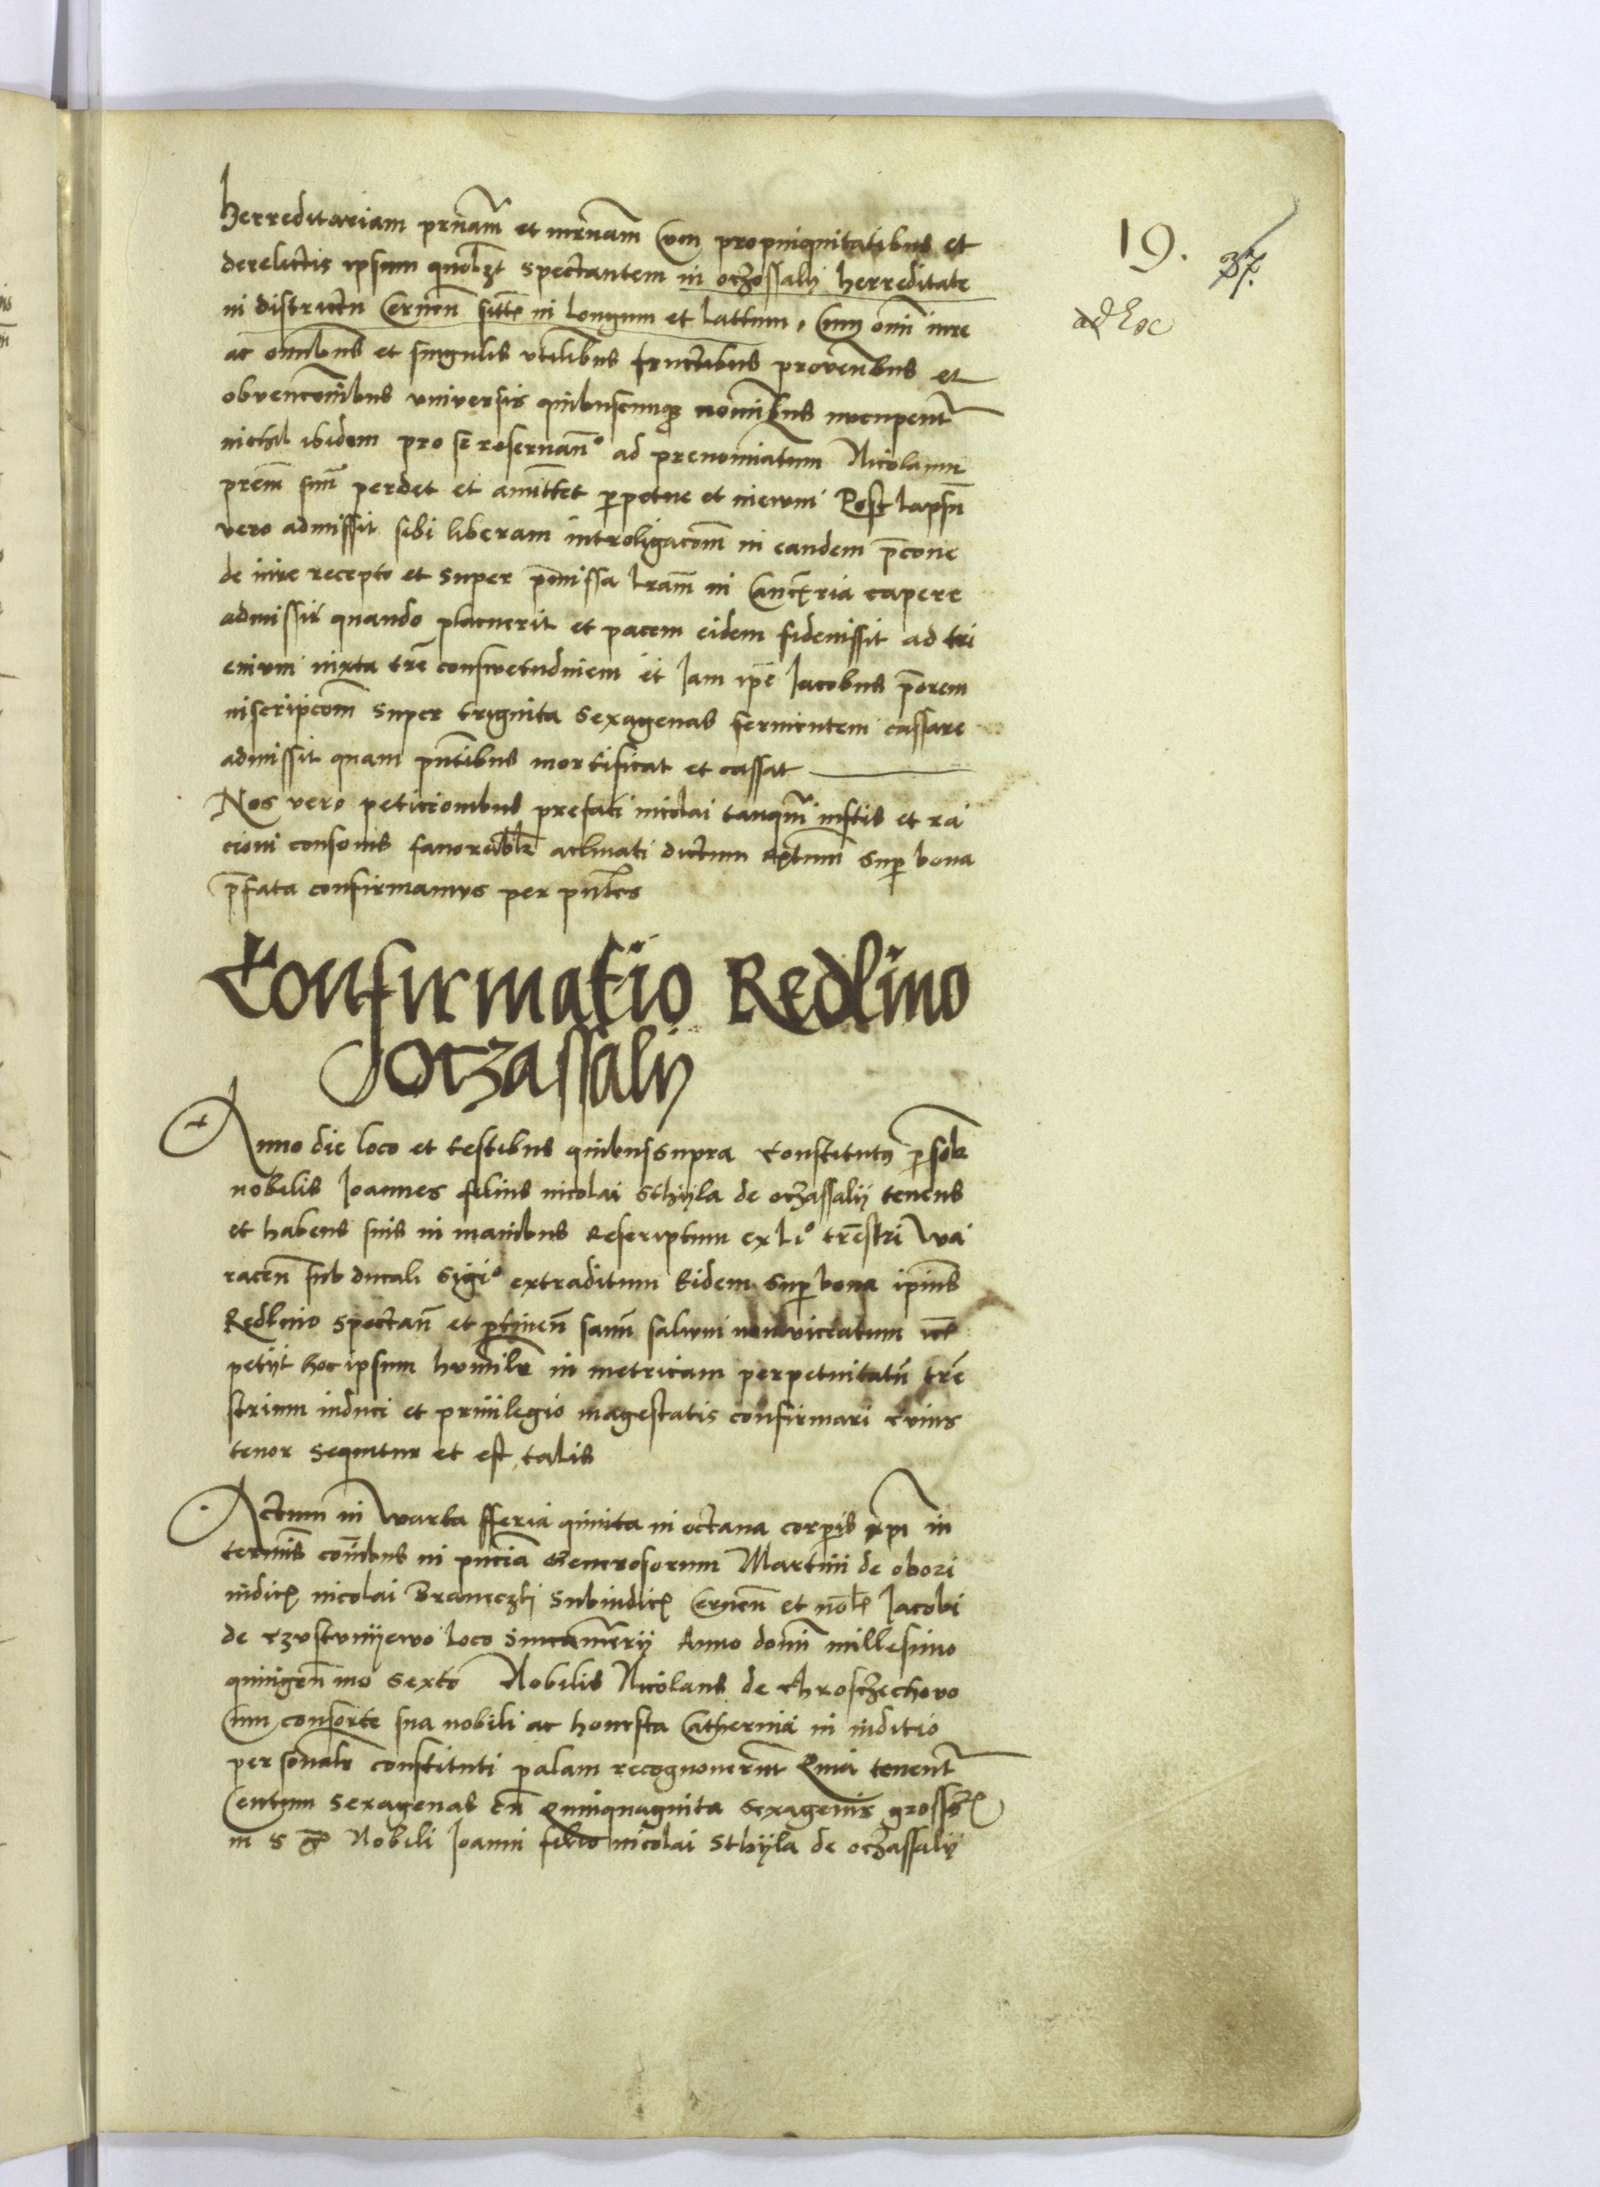 19. 37.
ad Hoc
herreditariam prnam et mrnam Cum propinquitatibus et
derelictis ipsum quolzt spectantem in oczossalij herreditate
in districtu Cernen sitte in longum et lattum, Cum omi iure
ac omibus et singulis vtilibus fructibus provenbus et
obvenconibus vniversis quibuscumque nomibus nucupentr
nichil ibidem pro se reservando ad prenominatum Nicolaum
prem sum perdet et amittet perpetue et in evum Post lapsum
vero admissit sibi liberam introligacom in eandem porcone
de iure recepto et super pmissa lram in Canctria capere
admissit quando placuerit et pacem eidem fideiussit ad tri
enium iuxta tre conswetudinem et Iam ipse Iacobus porem
inscripcom super triginta sexagenas fermentem cassare
admissit quam pntibus mortificat et cassat
Nos vero peticionibus prefati nicolai tanquam iustis et ra
cioni consonis favorabilr aclinati dictum Rptum super bona
pfata confirmamvs per pntes
Confirmatio Redlino
oczassalij
Anno die loco et testibus quibus supra Constitutus psolr
nobilis Ioannes filius nicolai Sthijla de oczassalij tenens
et habens suis in manibus Rescriptum ex lio trestri wa
racen sub ducali sigio extraditum Eidem super bona ipius
Redlino spectan et ptinen sanum salvum non viciatum
petijt hoc ipsum humilr in metricam perpetuitatum tre
strium induci et privilegio magestatis confirmari Cuius
tenor sequitur et est talis
Actum in Warta fferia quinta in octava corporis xpi in
termis comibus in pncia Generosorum Martini de obori
iudicis nicolai Braneczkj Subiudicis Cernen et nolis Iacobi
de Czvstvnijewo loco Succamerij Anno domi millesimo
quingenmo sexto Nobilis Nicolaus de Chroschechowo
Cum consorte sua nobili ac honesta Catherina in iuditio
personalr constituti palam recognoverunt Quia tenentr
Centum sexagenas cum Quinquaginta sexagenis grossor
m s Nobili Ioanni filio nicolai Sthijla de oczassalij